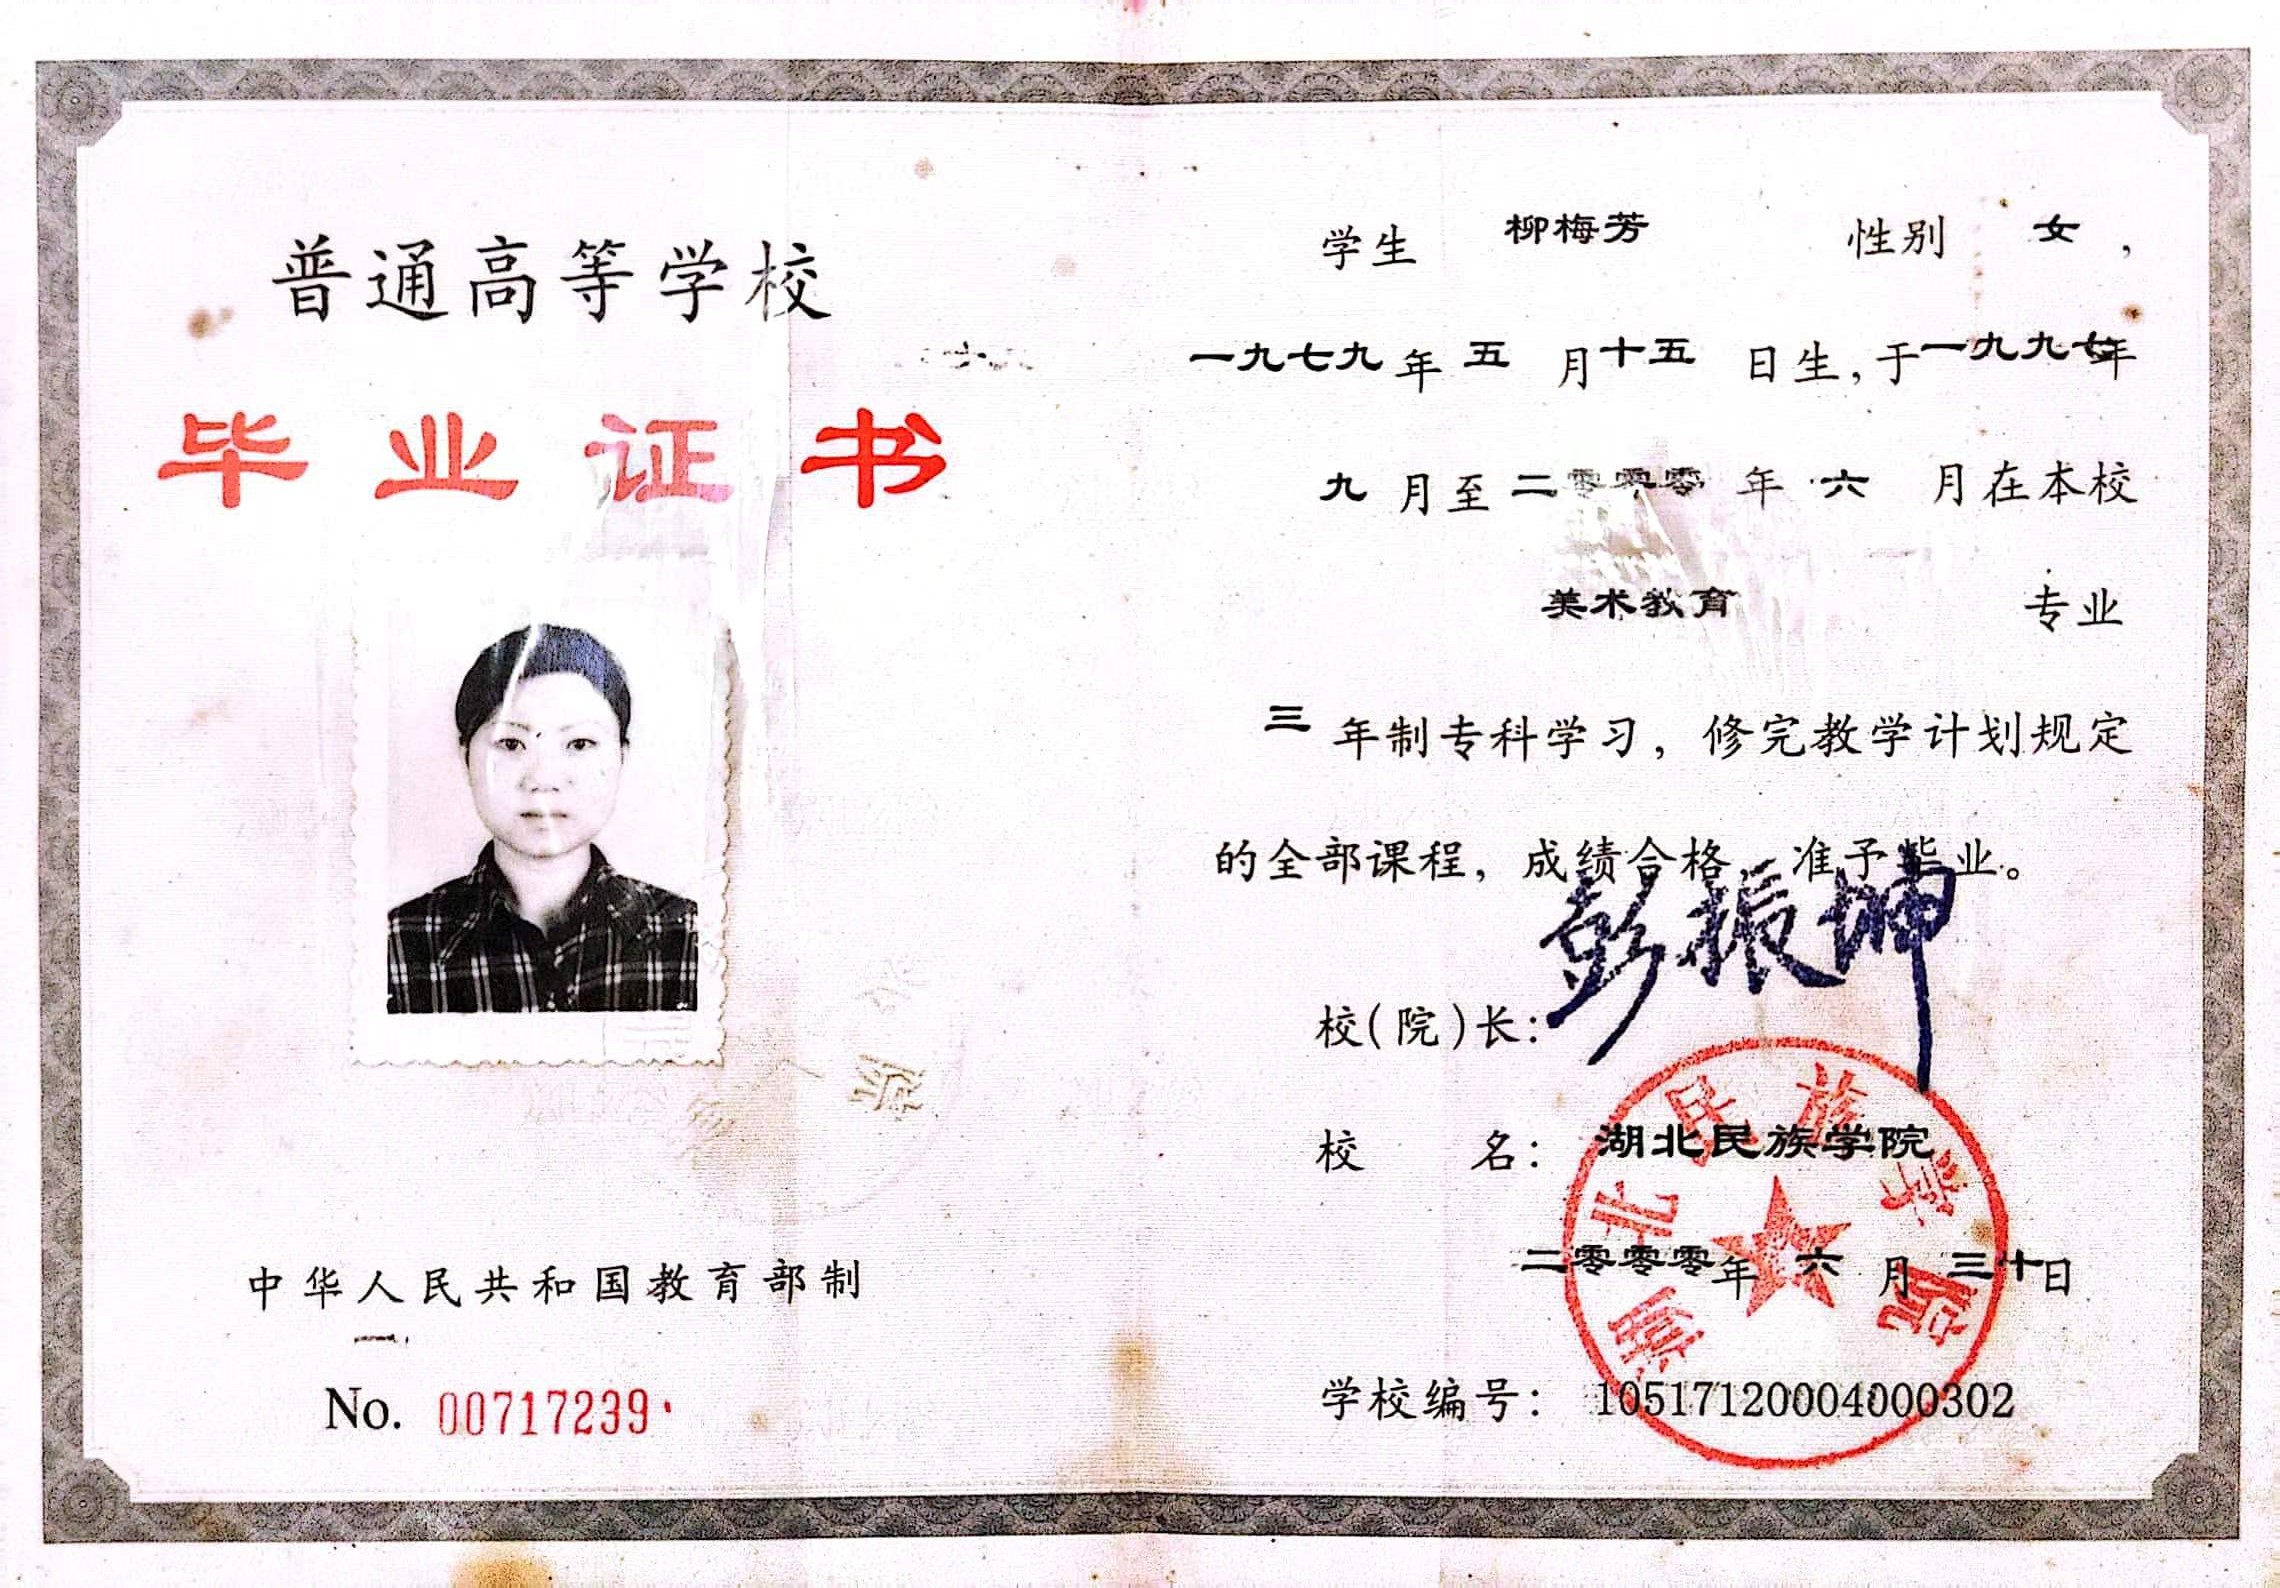 普通高等学校
毕业证书
中华人民共和国教育部制
No. 00717239
学生 柳梅芳 性别 女，
一九七九年五月十五日生，于一九九七年
九月至二零零零年六月在本校
美术教育 专业
三年制专科学习，修完教学计划规定
的全部课程，成绩合格，准予毕业。
校(院)长：彭振坤
校 名：湖北民族学院
二零零零年六月三十日
学校编号：10517120004000302
湖北民族学院